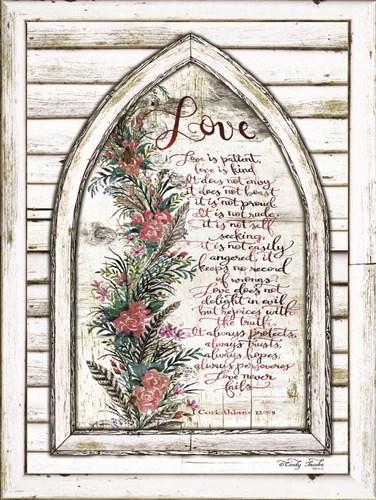 Love
Love is patient,
love is kind.
It does not envy
it does not boast
it is not proud
It is not rude,
it is not self
seeking,
it is not easily
angered, it
keeps no record
of wrongs
Love does not
delight in evil
but rejoices with
the truth.
It always protects,
always trusts,
always hopes,
always perseveres
Love never
fails
1 Corinthians 13:4-8
©Cindy Jacobs